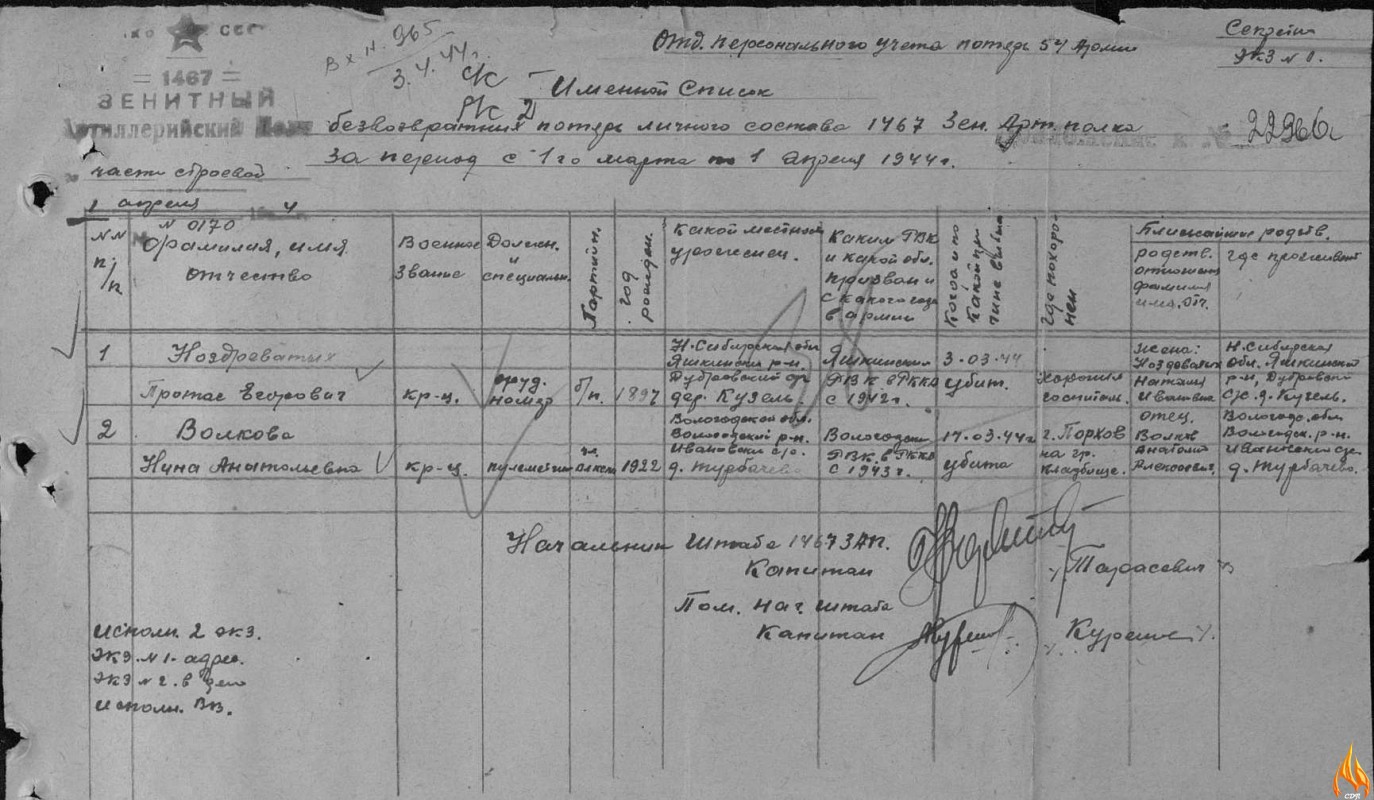 НКО СССР
= 1467 =
ЗЕНИТНЫЙ
Артиллерийский Полк
части строевой
1 апреля 4
N 0170
Вх N. 965
3.4.44г.
Отд. персонального учета потерь 54 Армии
Секретн
Экз N 1.
Именной Список
безвозвратных потерь личного состава 1467 Зен. Арт. полка
За период с 1го марта по 1 апреля 1944г.
22966с
NN п/п
Фамилия, имя отчество
Военное звание
Должн. и специальн.
Партийн.
год рожден.
Какой местности уроженец.
Каким РВК и какой обл. призван и с какого года в армии
Когда и по какой причине выбыл
где похоронен
Ближайшие родств.
родств. отношен фамилия имя. отч.
где проживают
1 Ноздреватых Н.Сибирская обл Яшкинский 3-03-44 жена: Н.Сибирская
Яшкинский р-н. обл. Яшкинский
Протас Егорович кр-ц. оруд. номер б/п. 1897 Дубровский дер. Кузель. РВК в РККА с 1942г. убит. Наталия Ивановна р-н, Дубровский с/с. д. Кузель.
2 Волкова Вологодской обл. Вологодский р-н. Вологодским 17.03.44г г. Порхов отец. Волков Вологодс. обл Вологодск. р-н.
Нина Анатольевна кр-ц. пулеметчик 1922 Ивановский с/с. д. Турбачево РВК в РККА с 1943г. убита на гр. кладбище. Анатолий Алексеевич, д. Турбачево.
Начальник Штаба 1467 ЗАП.
Капитан /Тарасевич/
Пом. нач. штаба
Капитан
Исполн. 2 экз.
Экз N 1- адрес.
Экз N 2. в дело
Исполн. ВВ.